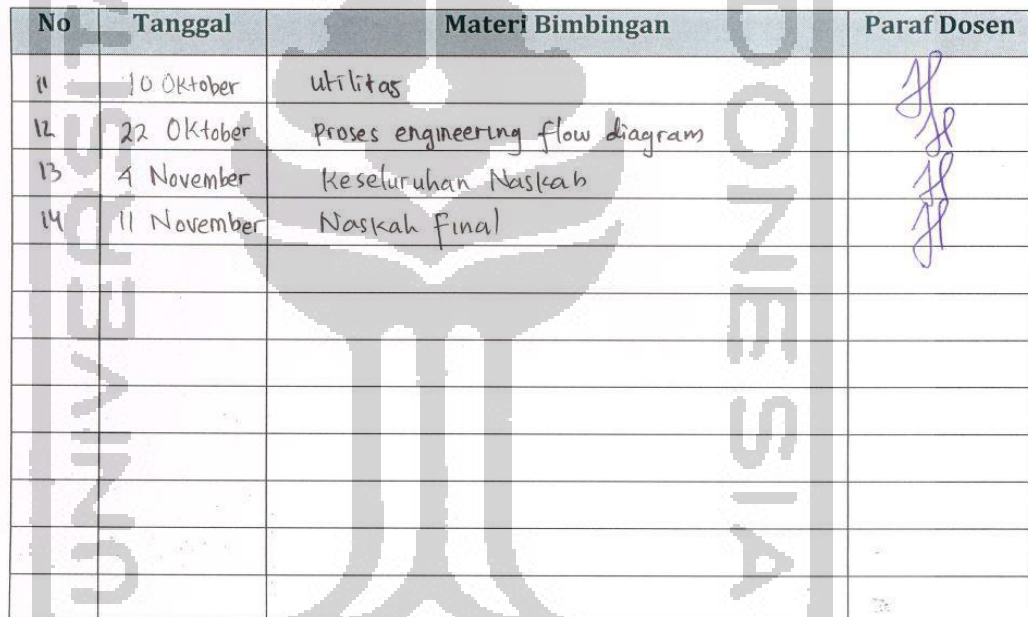 No Tanggal Materi Bimbingan Paraf Dosen
11 10 Oktober Utilitas
12 22 Oktober Proses engineering flow diagram
13 4 November Keseluruhan Naskah
14 11 November Naskah Final
UNIVERSIT
DONESIA